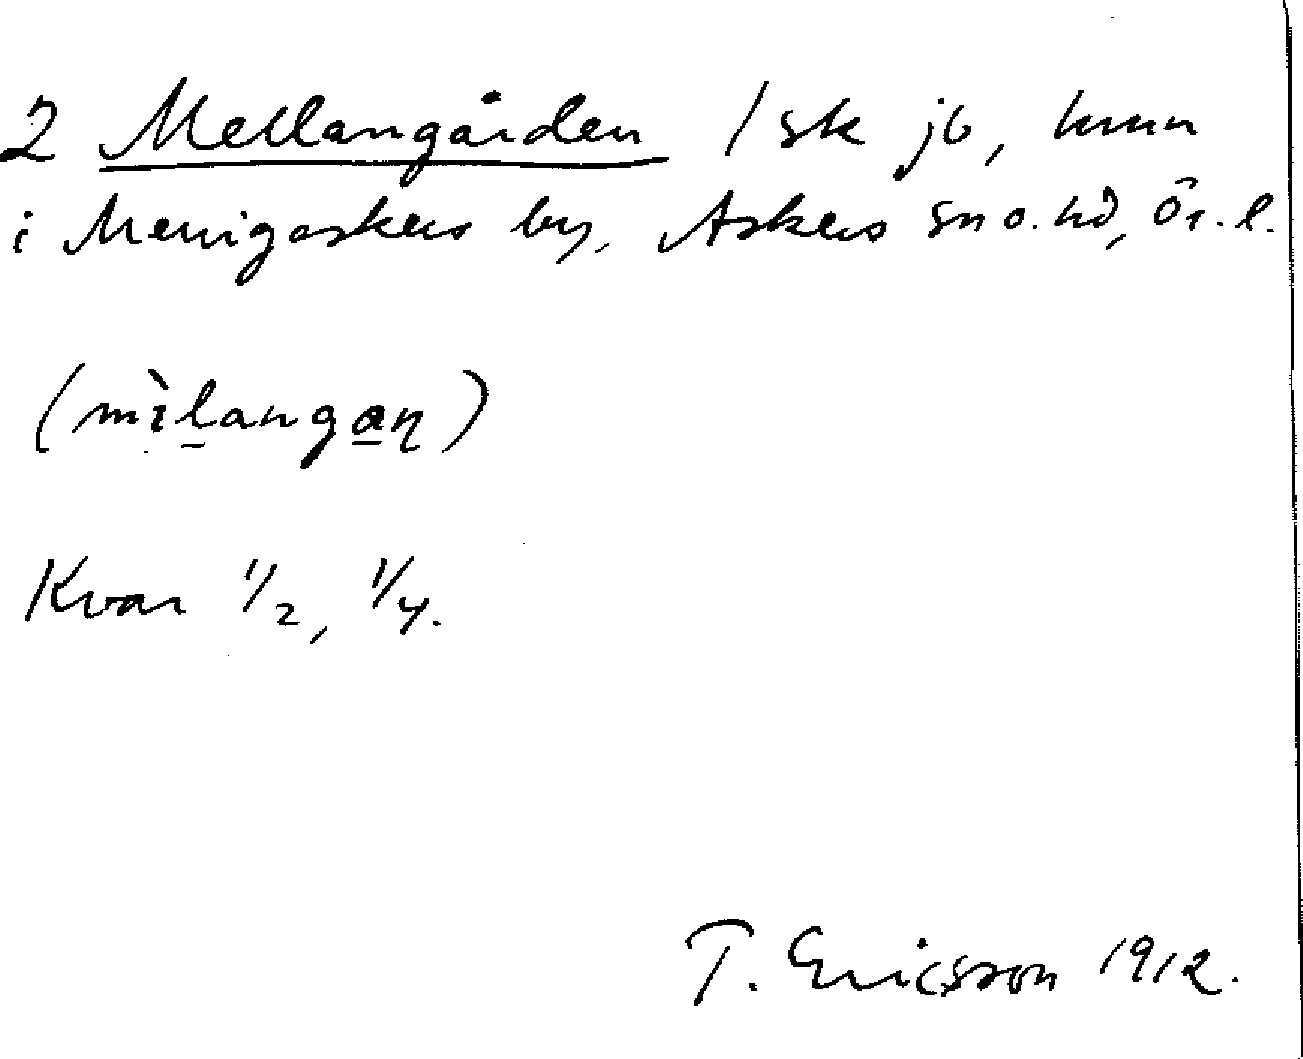 2 Mellangården 1 sk jb, hmn
i Menigaskers by, Askers sn o. hd, Ör. l.
(mìlangan)
Kvar 1/2, 1/4.
T. Ericsson 1912.